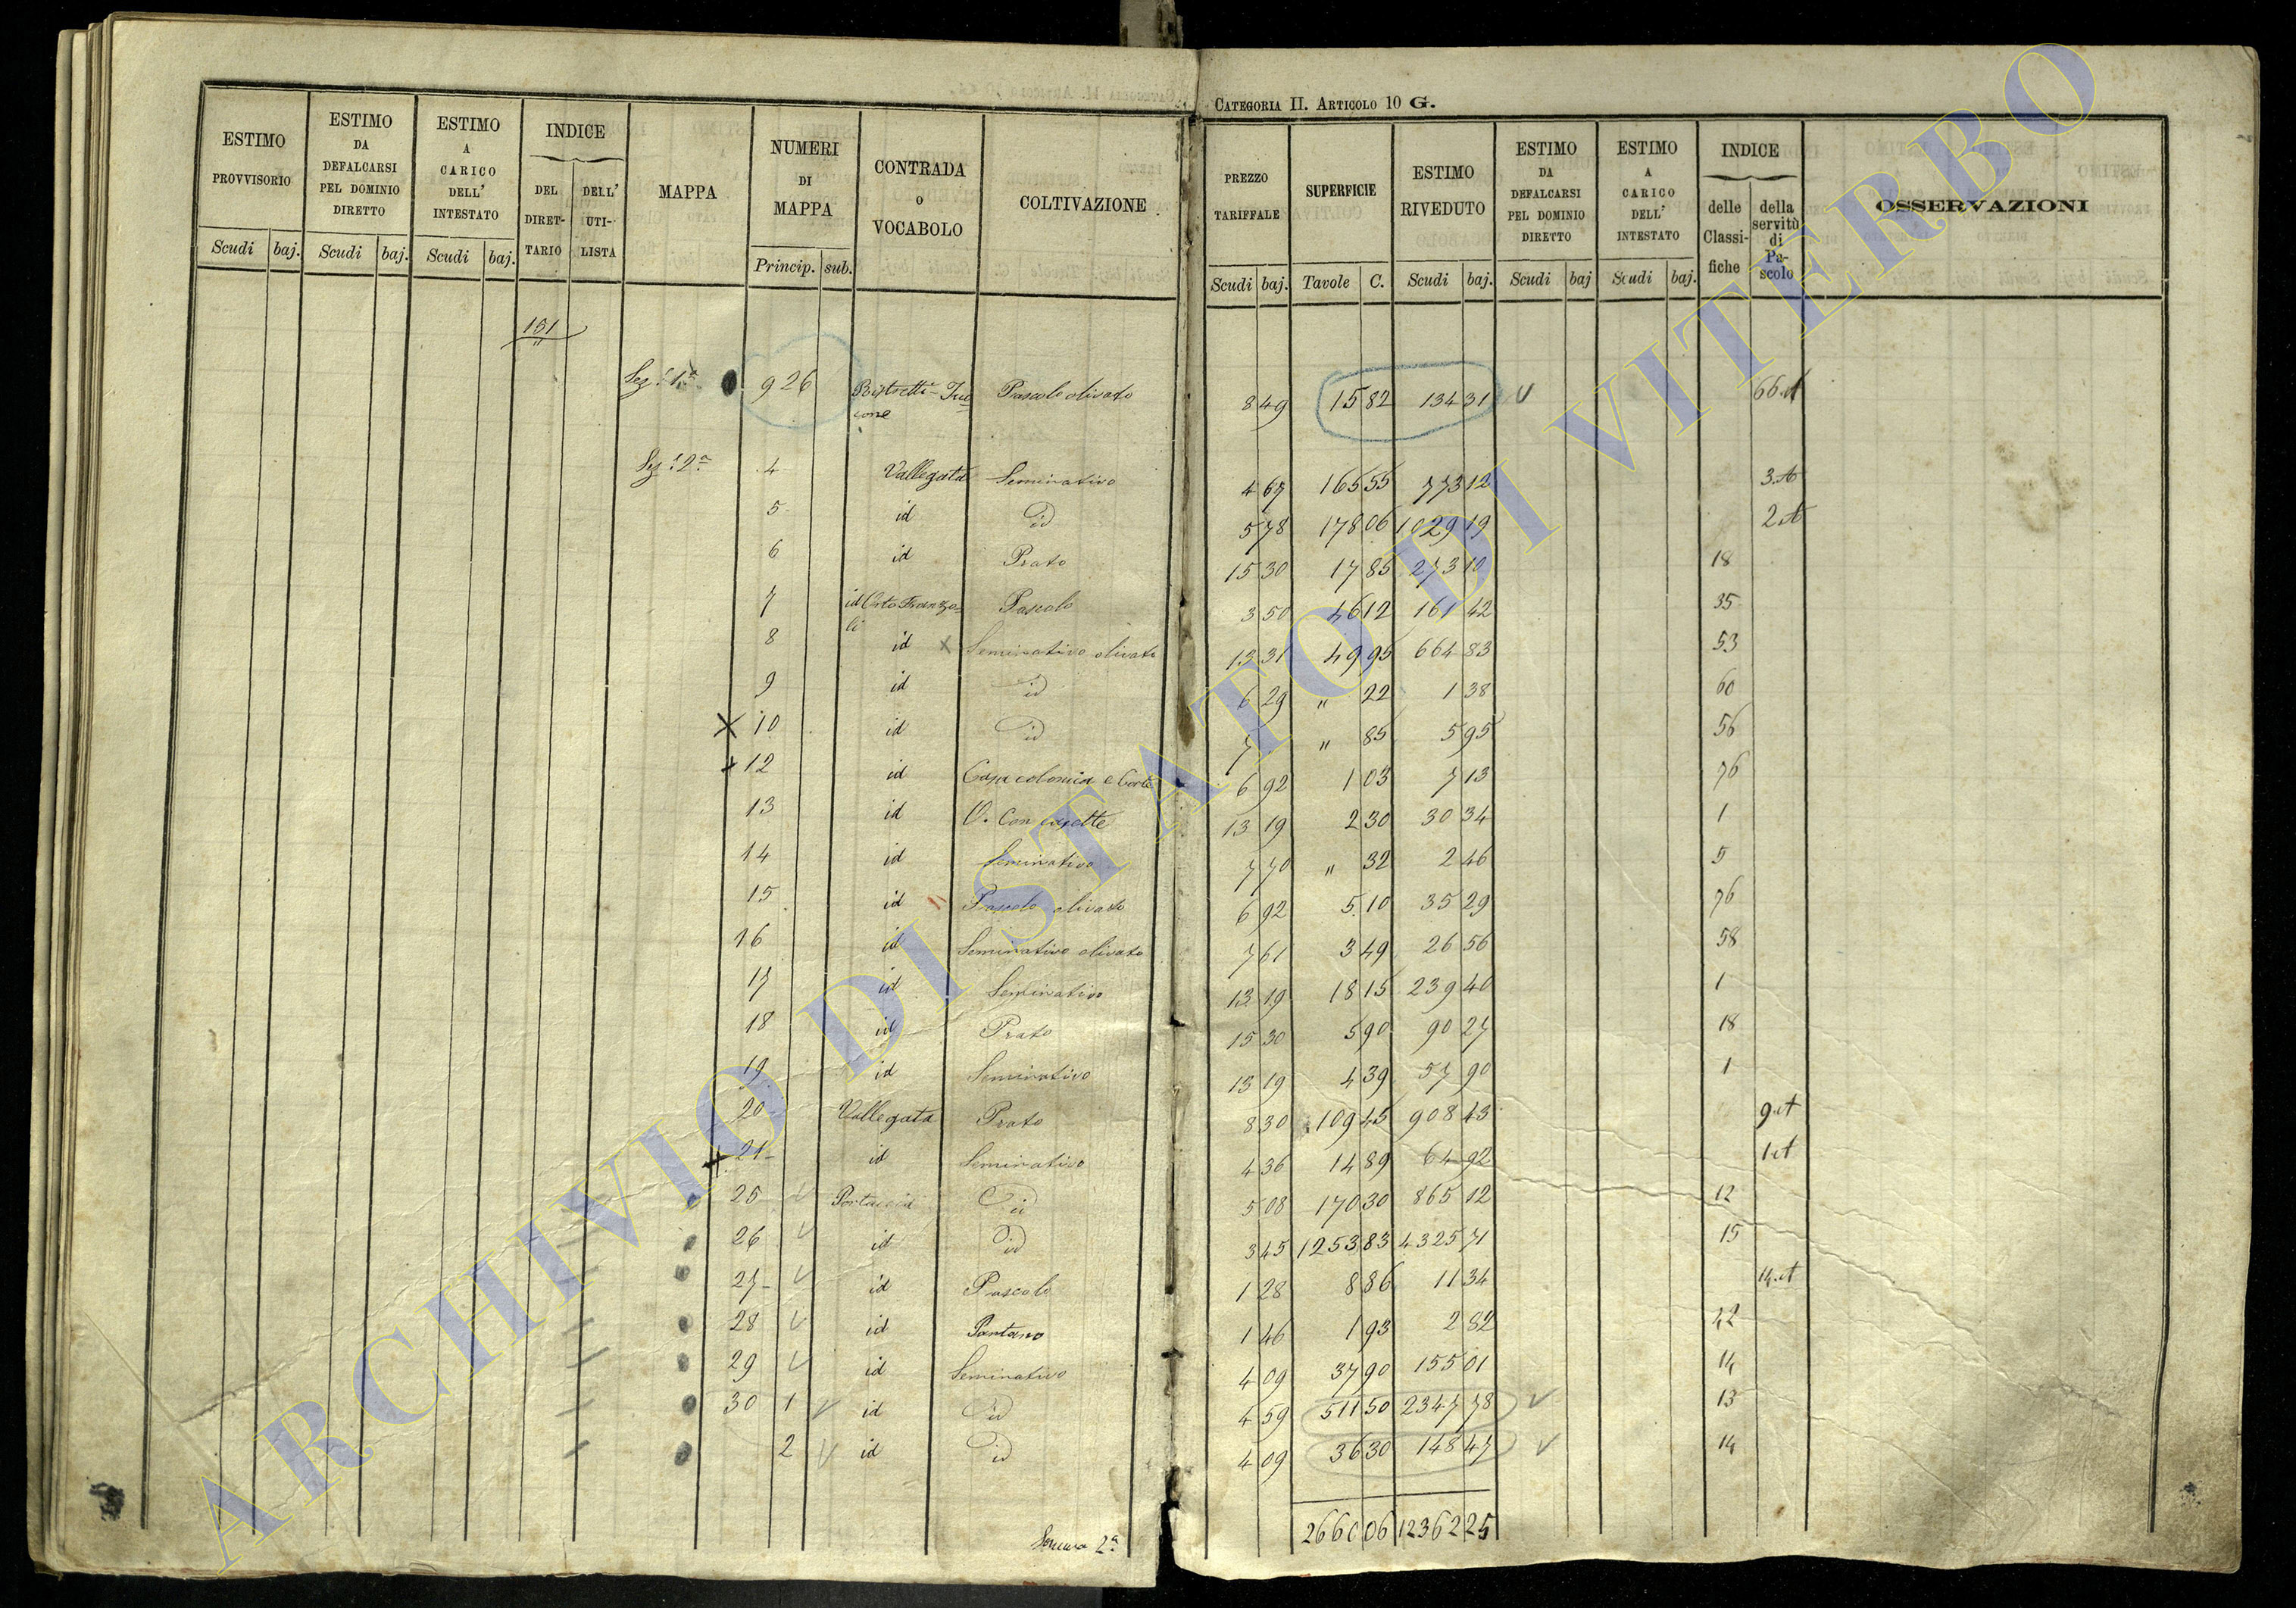 CATEGORIA II. ARTICOLO 10 G.
ESTIMO PROVVISORIO Scudi baj.
ESTIMO DA DEFALCARSI PEL DOMINIO DIRETTO Scudi baj.
ESTIMO A CARICO DELL' INTESTATO Scudi baj.
INDICE DEL DIRETTARIO DELL' UTILISTA
MAPPA
NUMERI DI MAPPA Princip. sub.
CONTRADA o VOCABOLO
COLTIVAZIONE
PREZZO TARIFFALE Scudi baj.
SUPERFICIE Tavole C.
ESTIMO RIVEDUTO Scudi baj.
ESTIMO DA DEFALCARSI PEL DOMINIO DIRETTO Scudi baj
ESTIMO A CARICO DELL' INTESTATO Scudi baj.
INDICE delle Classifiche della servitù di Pascolo
OSSERVAZIONI
151
Sez. 1ª 926 Pascolo olivato 8 49 15 82 134 31 66.A
Sez. 2ª 4 Vallegata Seminativo 4 67 165 55 773 12 3.A
5 id id 5 78 178 06 1029 19 2.A
6 id Prato 15 30 17 85 273 10 18
7 id Orto Franzoli Pascolo 3 50 46 12 161 42 35
8 id X Seminativo olivato 13 31 49 95 664 83 53
9 id id 6 29 " 22 1 38 60
X 10 id id 7 " 85 5 95 56
+ 12 id Casa colonica e Corte 6 92 1 03 7 13 76
13 id O. Con casette 13 19 2 30 30 34 1
14 id Seminativo 7 70 " 32 2 46 5
15 id Pascolo olivato 6 92 5 10 35 29 76
16 id Seminativo olivato 7 61 3 49 26 56 58
17 id Seminativo 13 19 18 15 239 40 1
18 id Prato 15 30 5 90 90 27 18
19 id Seminativo 13 19 4 39 57 90 1
20 Vallegata Prato 8 30 109 45 908 43 9.A
+ 21 id Seminativo 4 36 14 89 64 92 1.A
25 Portaccia id 5 08 170 30 865 12 12
26 id id 3 45 1253 83 4325 71 15
27 id Pascolo 1 28 8 86 11 34 14.A
28 id Pantano 1 46 1 93 2 82 42
29 id Seminativo 4 09 37 90 155 01 14
30 1 id id 4 59 511 50 2347 78 13
2 id id 4 09 36 30 148 47 14
Somma 2ª 2660 06 12362 25
ARCHIVIO DI STATO DI VITERBO